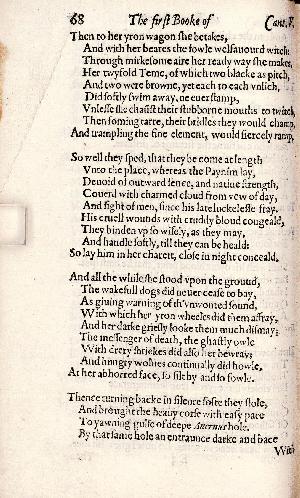 68 The first Booke of Cant. V.
Then to her yron wagon she betakes,
And with her beares the fowle welfauourd witch:
Through mirkesome aire her ready way she makes,
Her twyfold Teme, of which two blacke as pitch,
And two were browne, yet each to each vnlich,
Did softly swim away, ne euer stamp,
Vnlesse she chaunst their stubborne mouths to twitch,
Then foming tarre, their bridles they would champ,
And trampling the fine element, would fiercely ramp.
So well they sped, that they be come at length
Vnto the place, whereas the Paynim lay,
Deuoid of outward sence, and natiue strength,
Couerd with charmed cloud from vew of day,
And sight of men, since his late luckelesse fray.
His cruell wounds with cruddy bloud congeald,
They binden vp so wisely, as they may,
And handle softly, till they can be heald:
So lay him in her charett, close in night conceald.
And all the while she stood vpon the ground,
The wakefull dogs did neuer cease to bay,
As giuing warning of th'vnwonted sound,
With which her yron wheeles did them affray,
And her darke griesly looke them much dismay;
The messenger of death, the ghastly owle
With drery shriekes did also her bewray;
And hungry wolues continually did howle,
At her abhorred face, so filthy and so fowle.
Thence turning backe in silence softe they stole,
And brought the heauy corse with easy pace
To yawning gulfe of deepe Auernus hole.
By that same hole an entraunce darke and bace
With